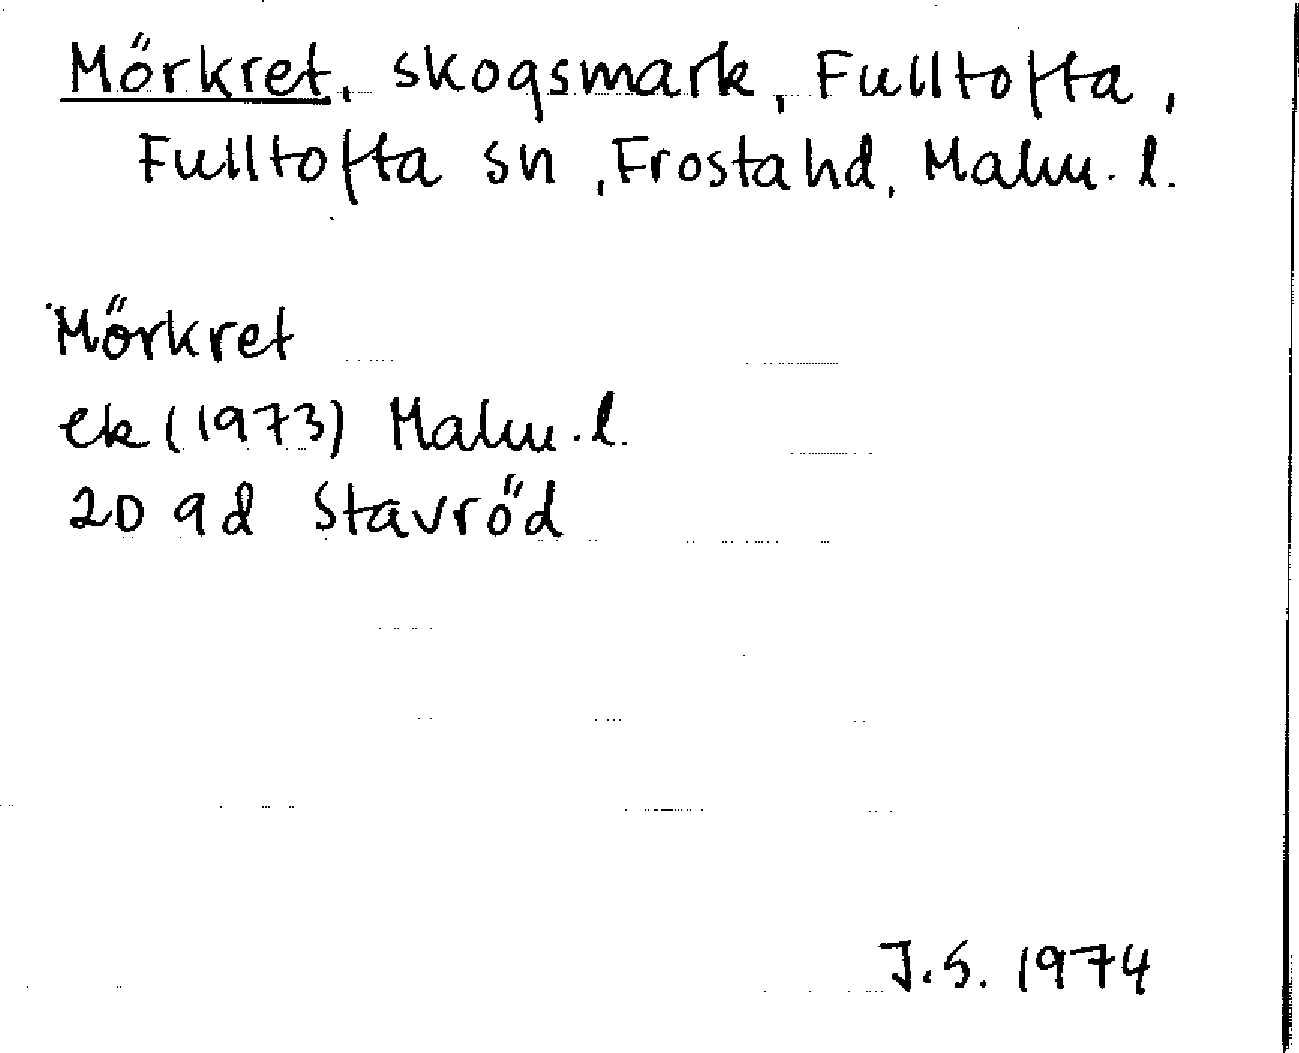 Mörkret, skogsmark, Fulltofta,
Fulltofta sn, Frosta hd, Malm. l.
Mörkret
ek (1973) Malm. l.
2D 9d Stavröd
J.S. 1974